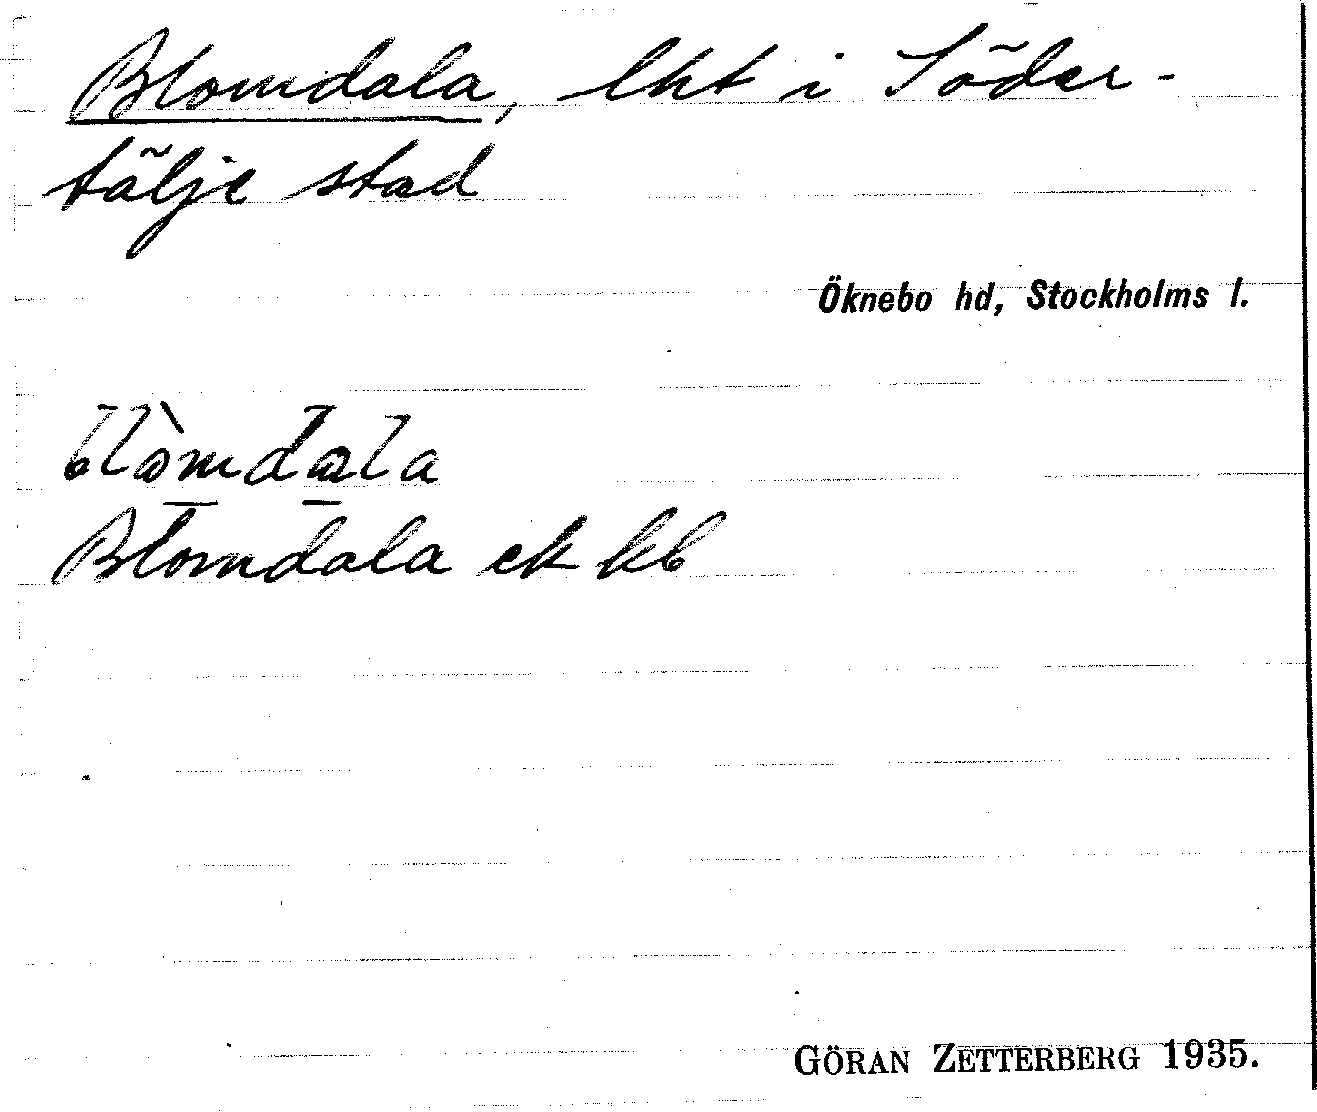 Blomdala, lht i Söder-
tälje stad
Öknebo hd, Stockholms l.
blòmdala
Blomdala ek kb
GÖRAN ZETTERBERG 1935.